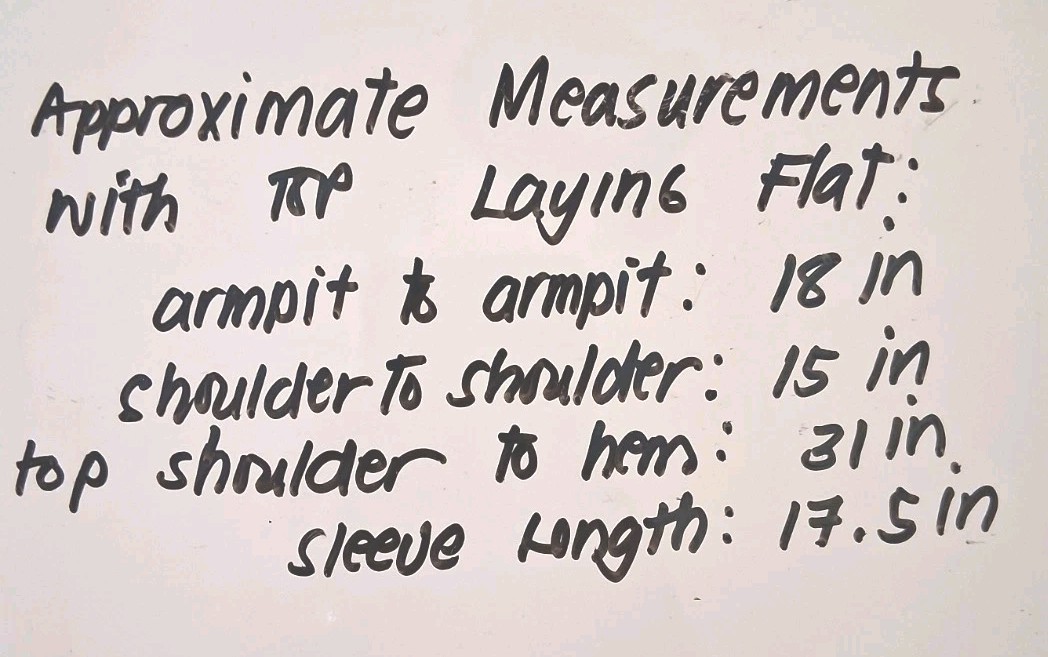 Approximate Measurements
with TOP Laying Flat:
armpit to armpit: 18 in
shoulder To shoulder: 15 in
top shoulder to hem: 31 in.
sleeve Length: 17.5 in